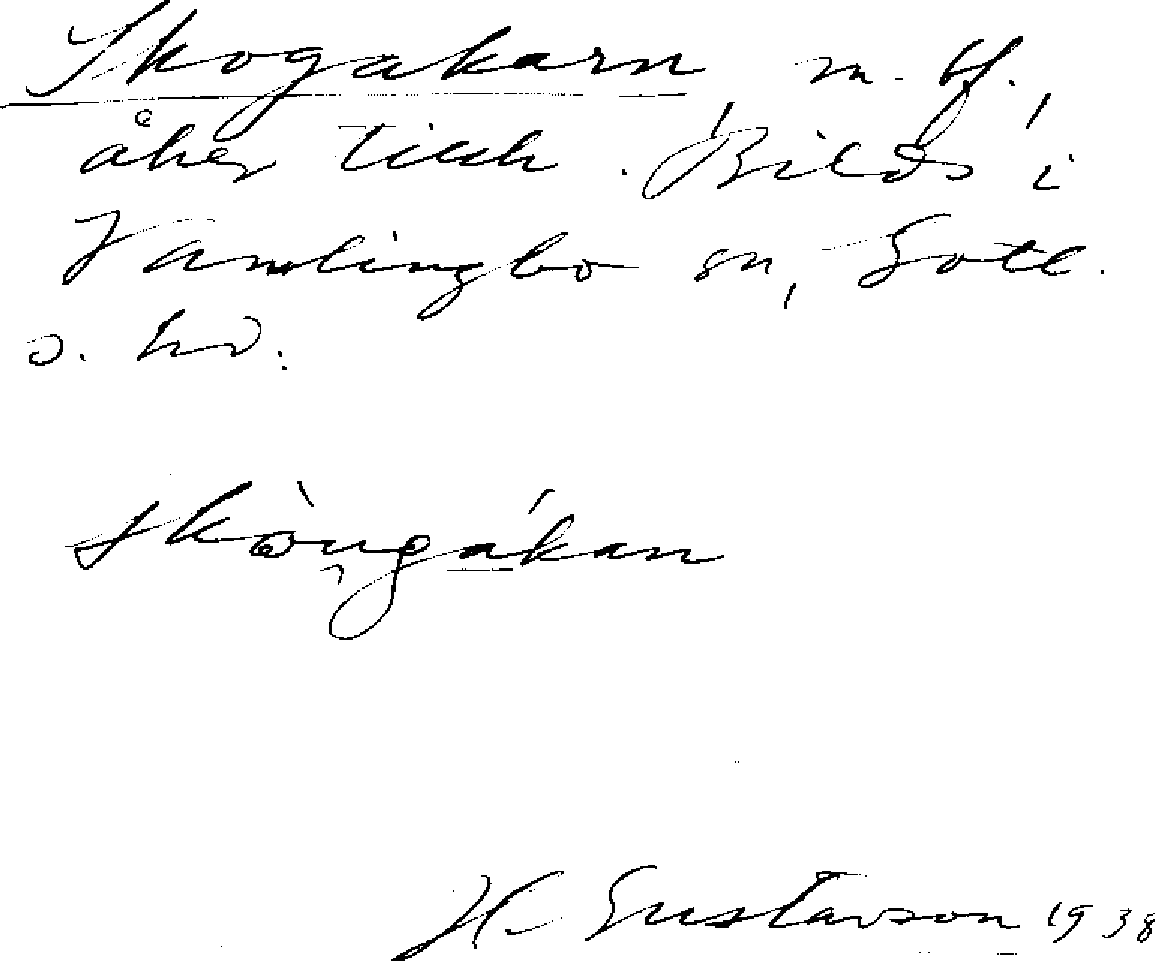 Skogakarn
åker tillh. Bilds i
Vamlingbo sn, Gotl.
s. hd.
skòu̯gákan
H. Gustavson 1938